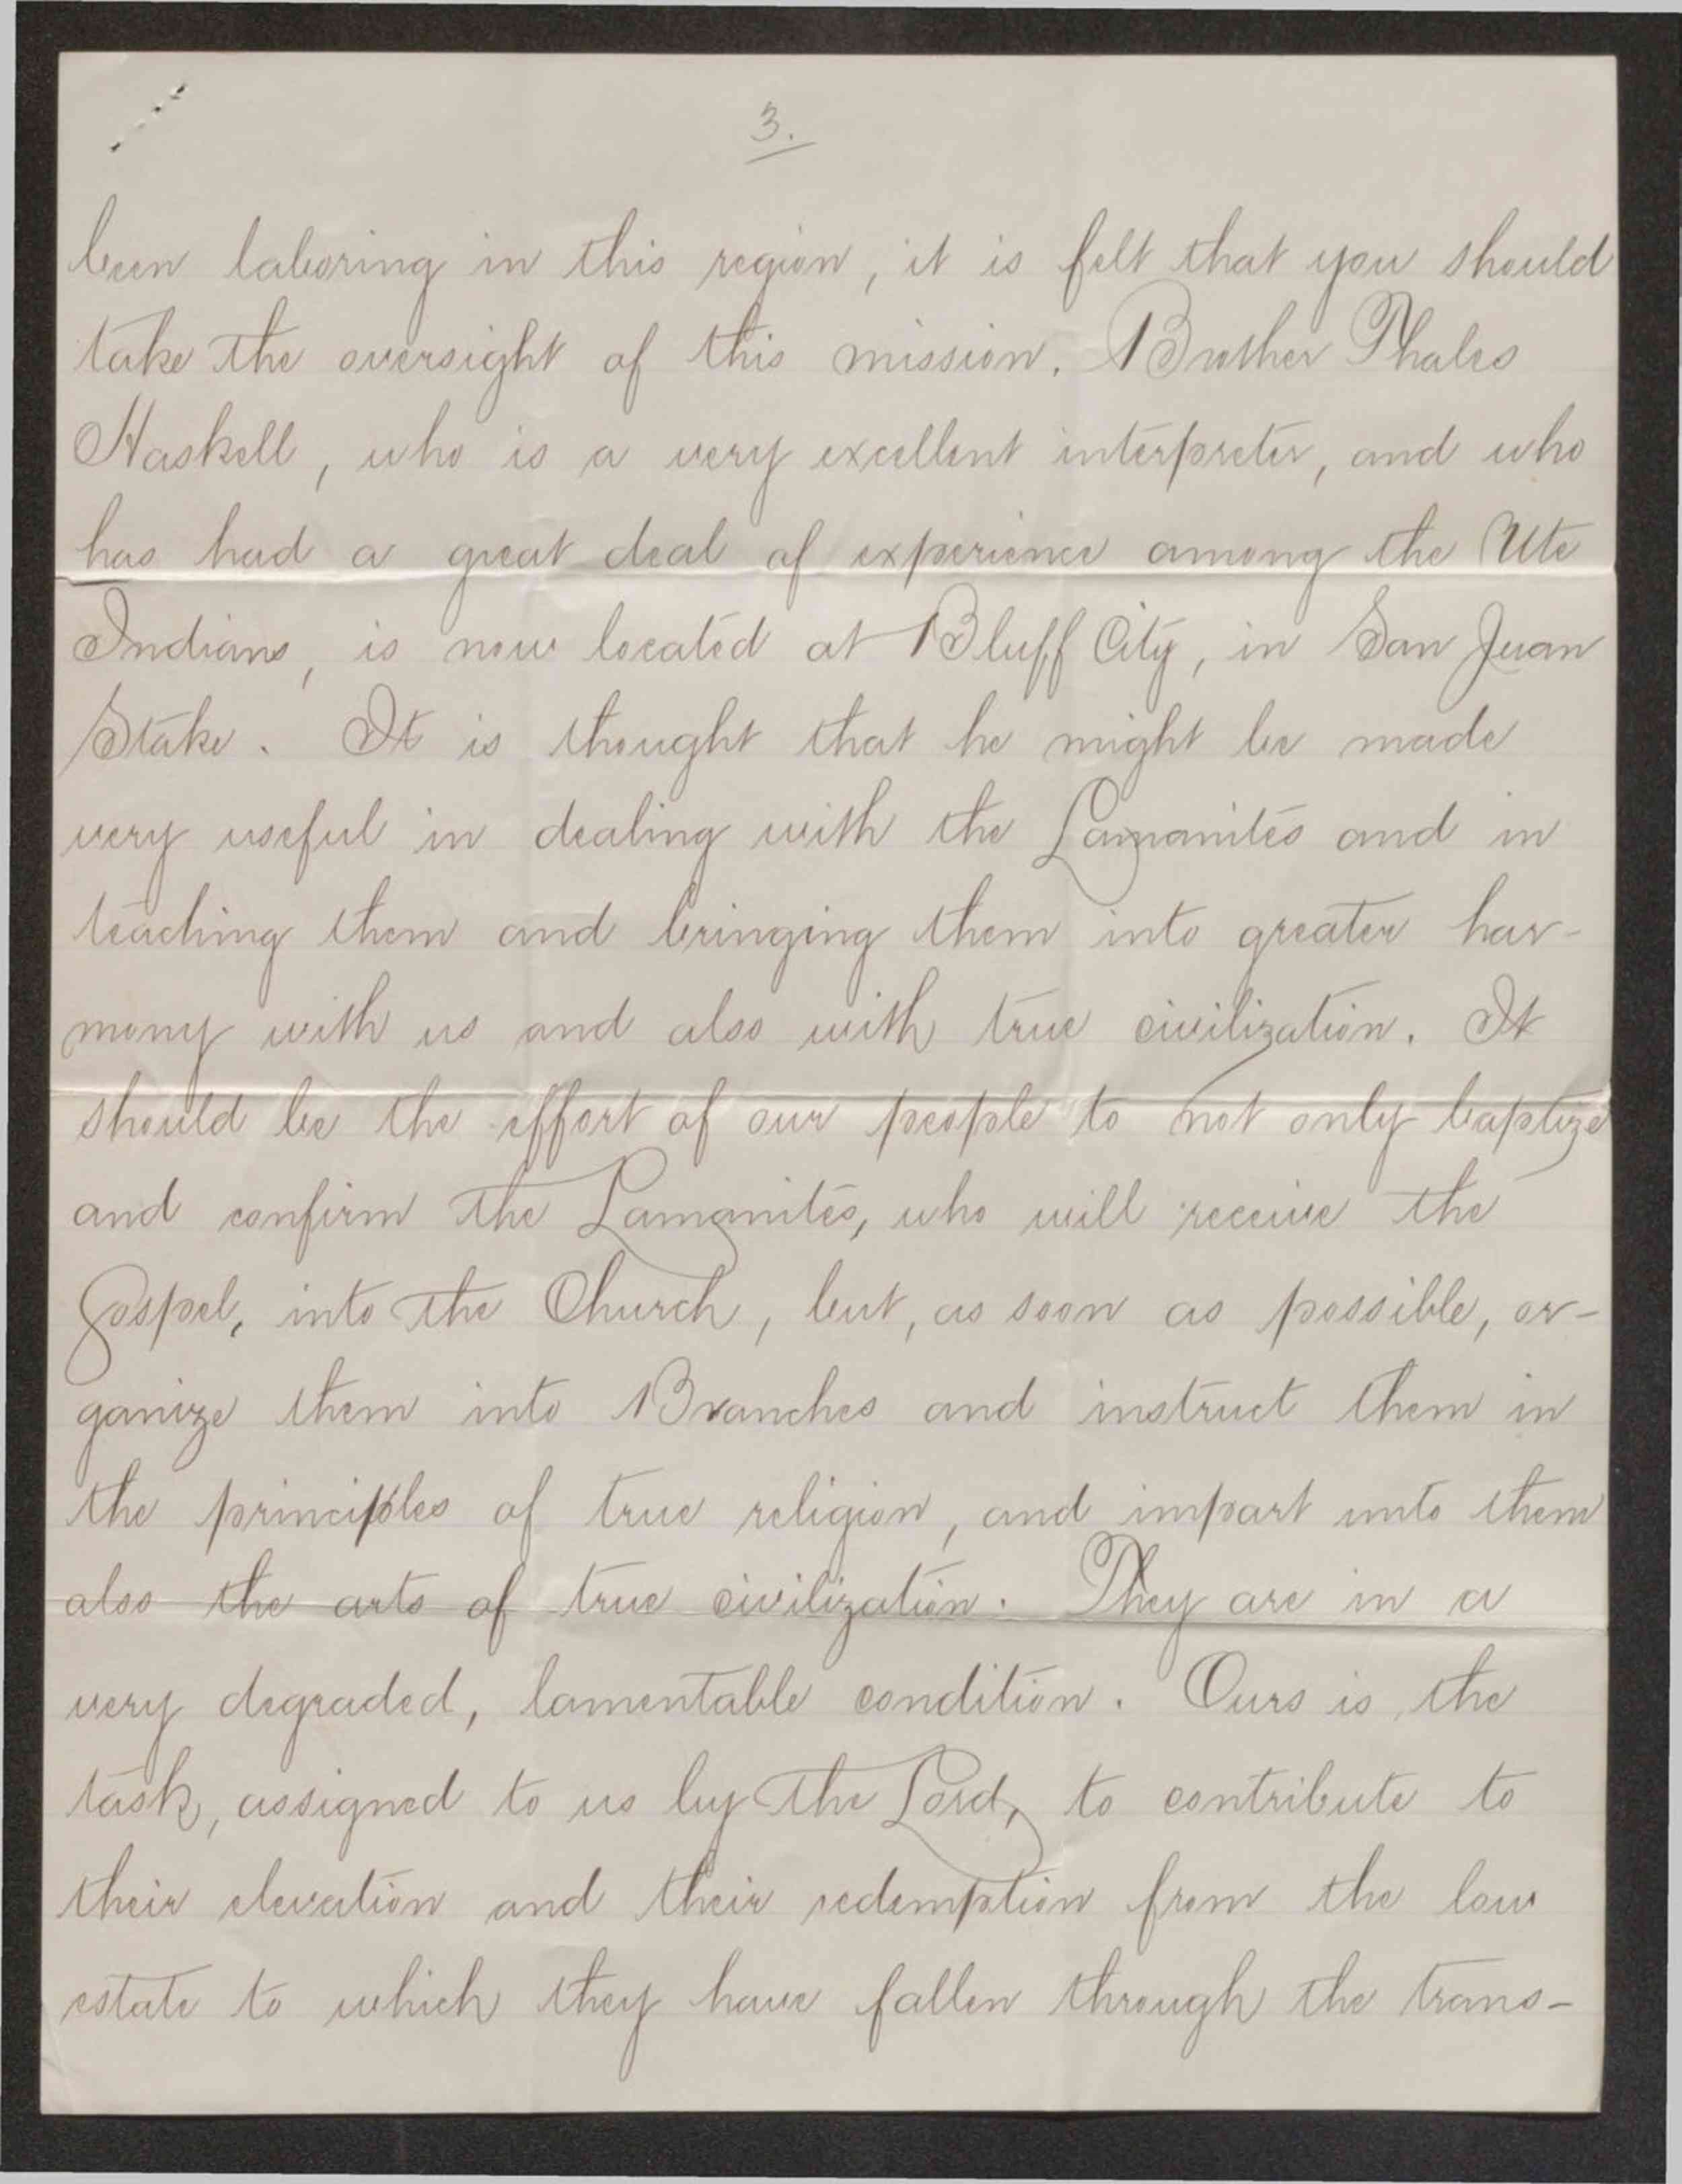 3.
been laboring in this region, it is felt that you should
take the oversight of this mission. Brother Thales
Haskell, who is a very excellent interpreter, and who
has had a great deal of experience among the Ute
Indians, is now located at Bluff City, in San Juan
Stake. It is thought that he might be made
very useful in dealing with the Lamanites and in
teaching them and bringing them into greater har-
mony with us and also with true civilization. It
should be the effort of our people to not only baptize
and confirm the Lamanites, who will receive the
Gospel, into the Church, but, as soon as possible, or-
ganize them into Branches and instruct them in
the principles of true religion, and impart unto them
also the arts of true civilization. They are in a
very degraded, lamentable condition. Ours is the
task, assigned to us by the Lord, to contribute to
their elevation and their redemption from the low
estate to which they have fallen through the trans-